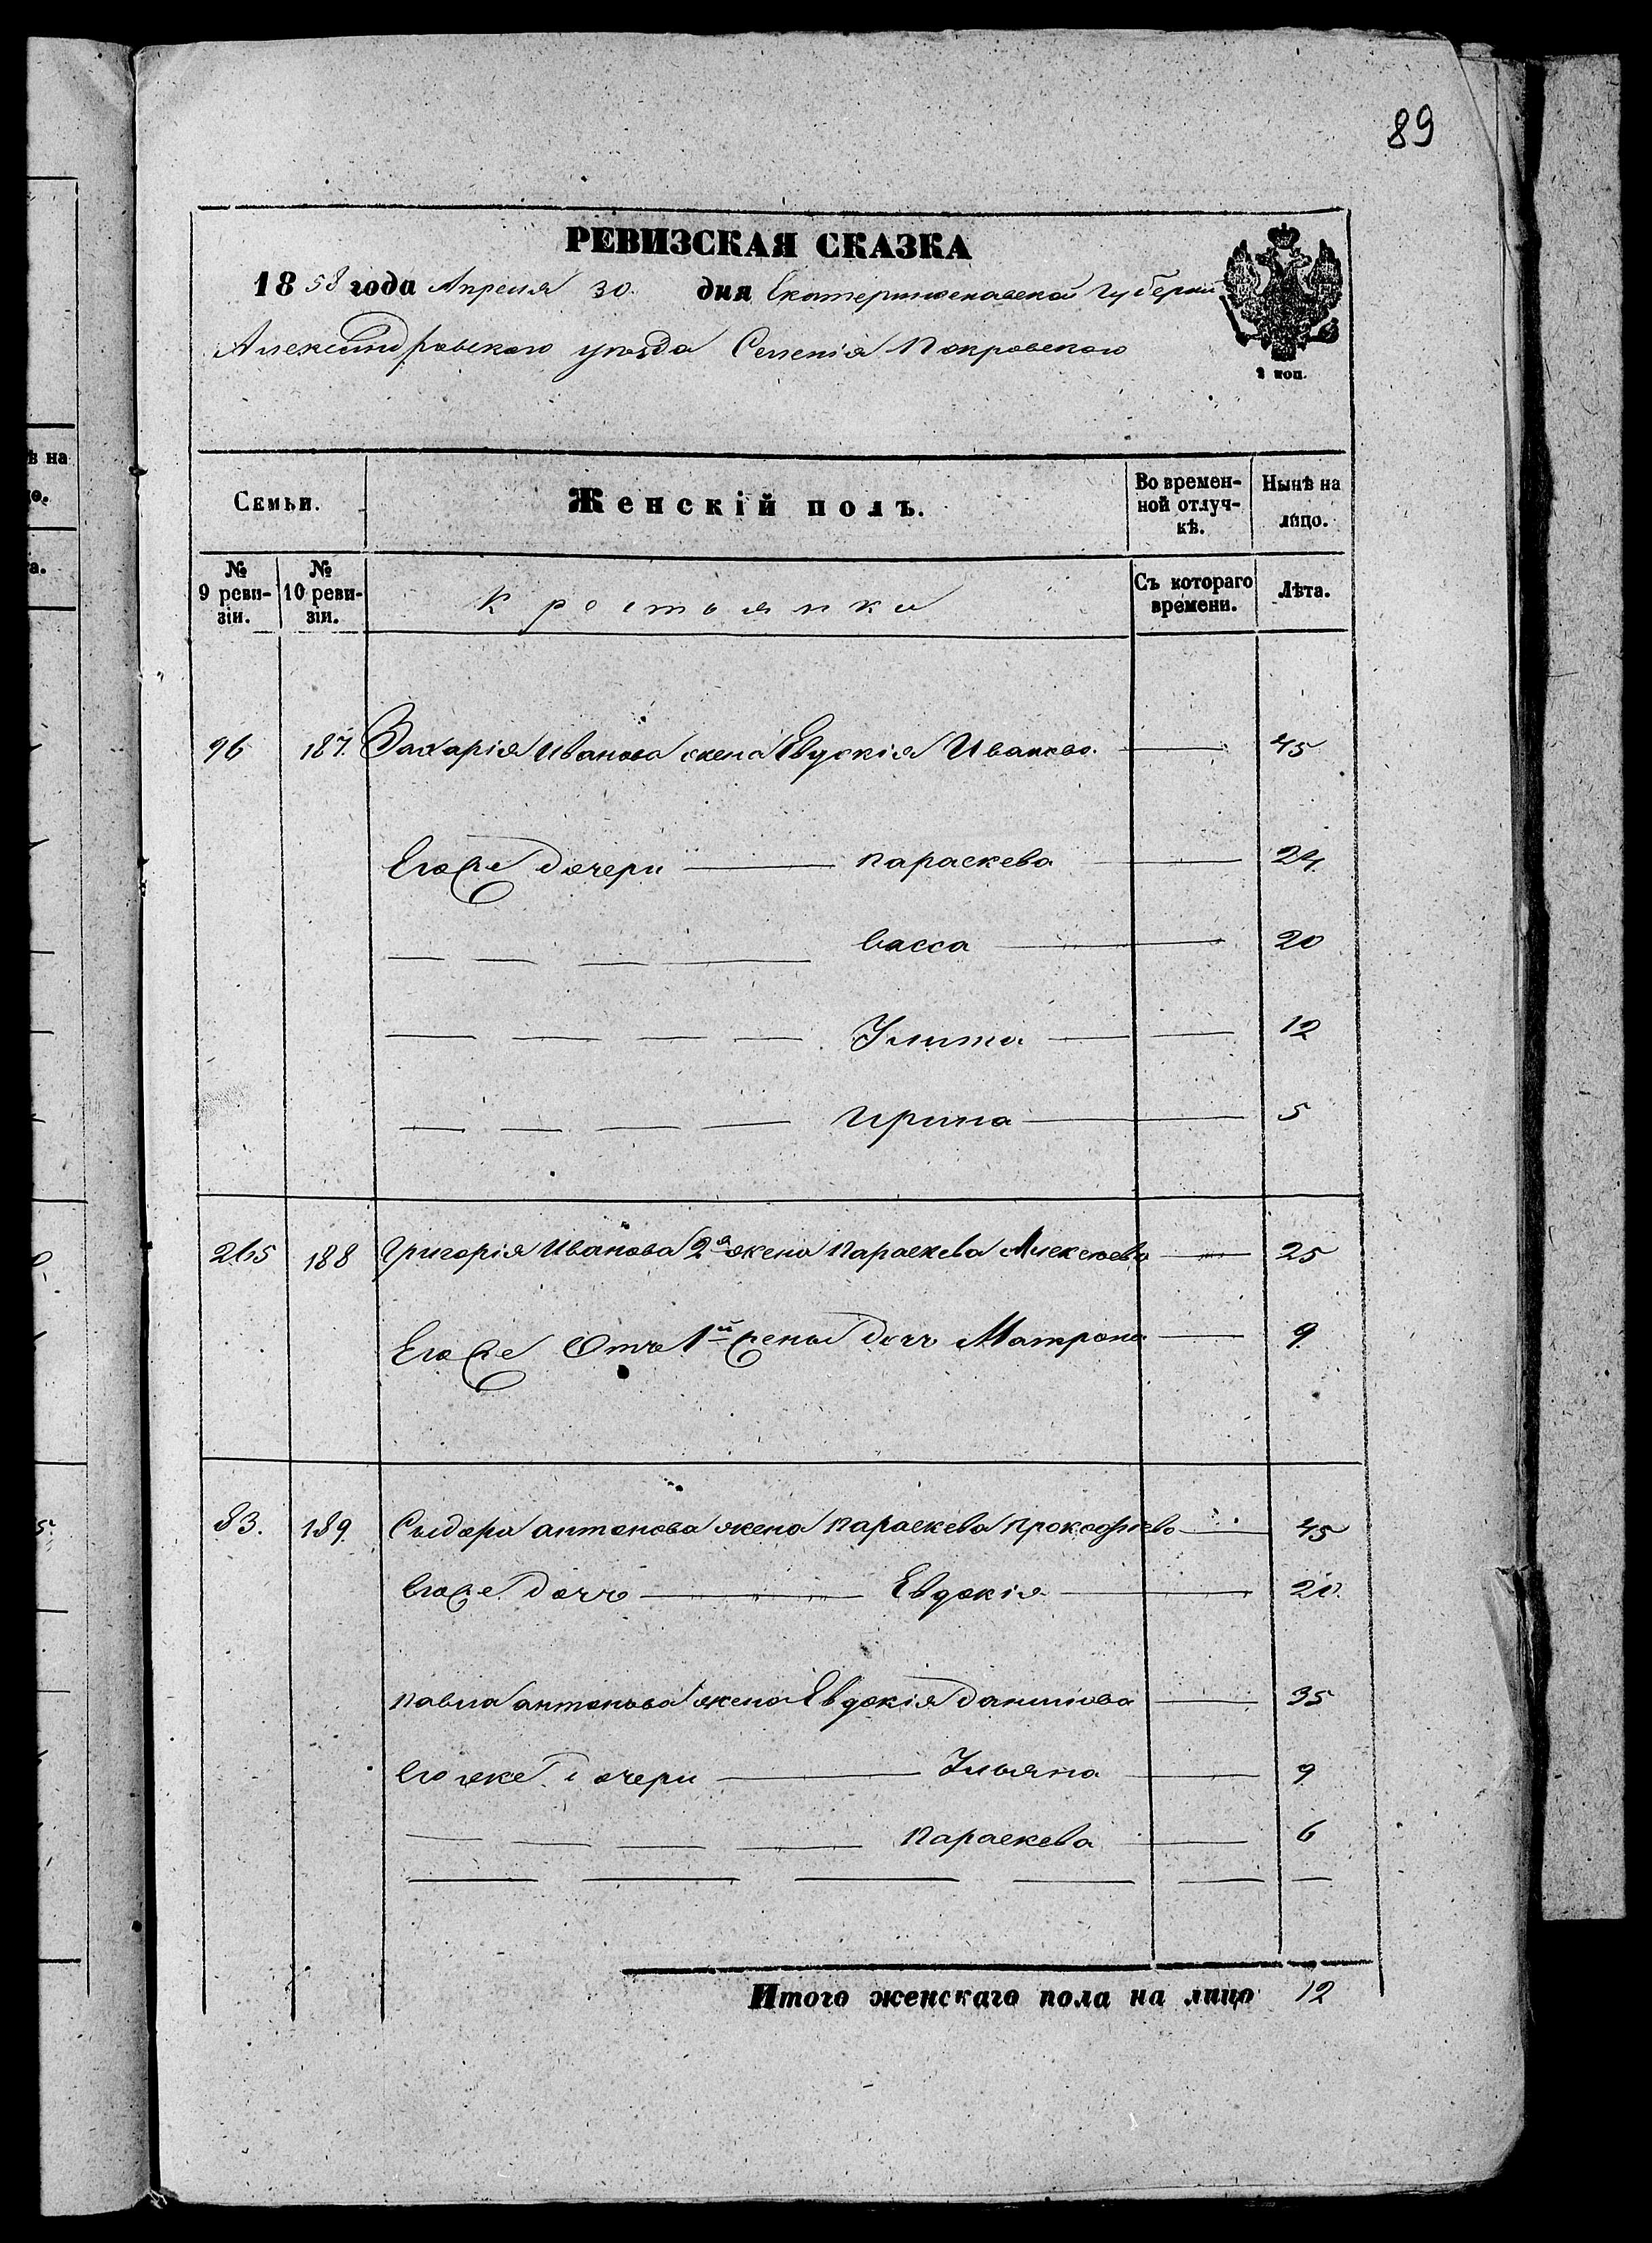 89
РЕВИЗСКАЯ СКАЗКА
1858 года Апреля 30 дня Екатеринославской Губернии
Александровского уезда Селенія Покровского
2 коп.
Семьи. Женскій полъ. Во временной отлучкѣ. Нынѣ на лицо.
№ 9 ревизіи. № 10 ревизіи. Крестьянки Съ котораго времени. Лѣта.
96 187. Захарія Иванова жена Евдокія Иванова 45
Его же дочери Параскева 24
Васса 20
Улита 12
Ирина 5
265 188 Григорія Иванова 2я жена Параскева Алексеева 25
Его же Отъ 1й жены дочь Матрона 9.
83. 189. Сыдора антонова жена Параскева Прокофьева 45
Его же дочь Евдокія 20.
Павла антонова жена Евдокія Данилова 35
Его же дочери Ульяна 9
Параскева 6
Итого женскаго пола на лицо 12
ѣ на
о.
а.